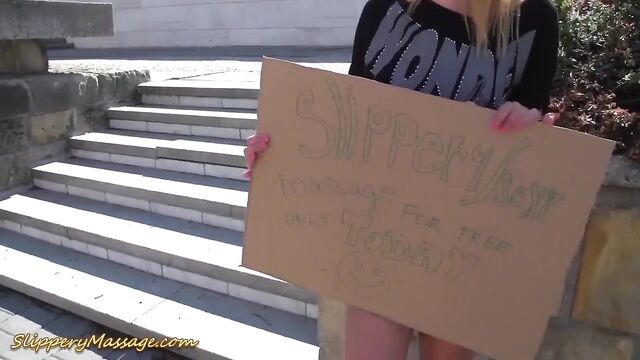 WONDE
Slippery/sexy
massage FOR FREE
ONLY TODAY
SlipperyMassage.com